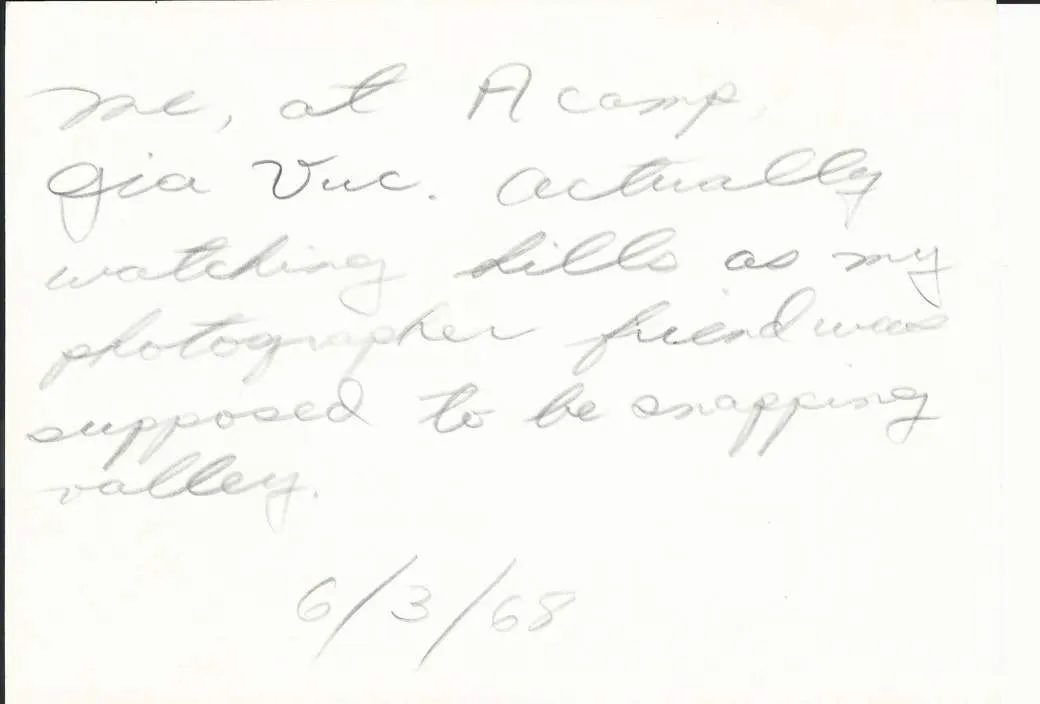 me, at A camp,
Gia Vuc. Actually
watching hills as my
photographer friend was
supposed to be snapping
valley.
6/3/68